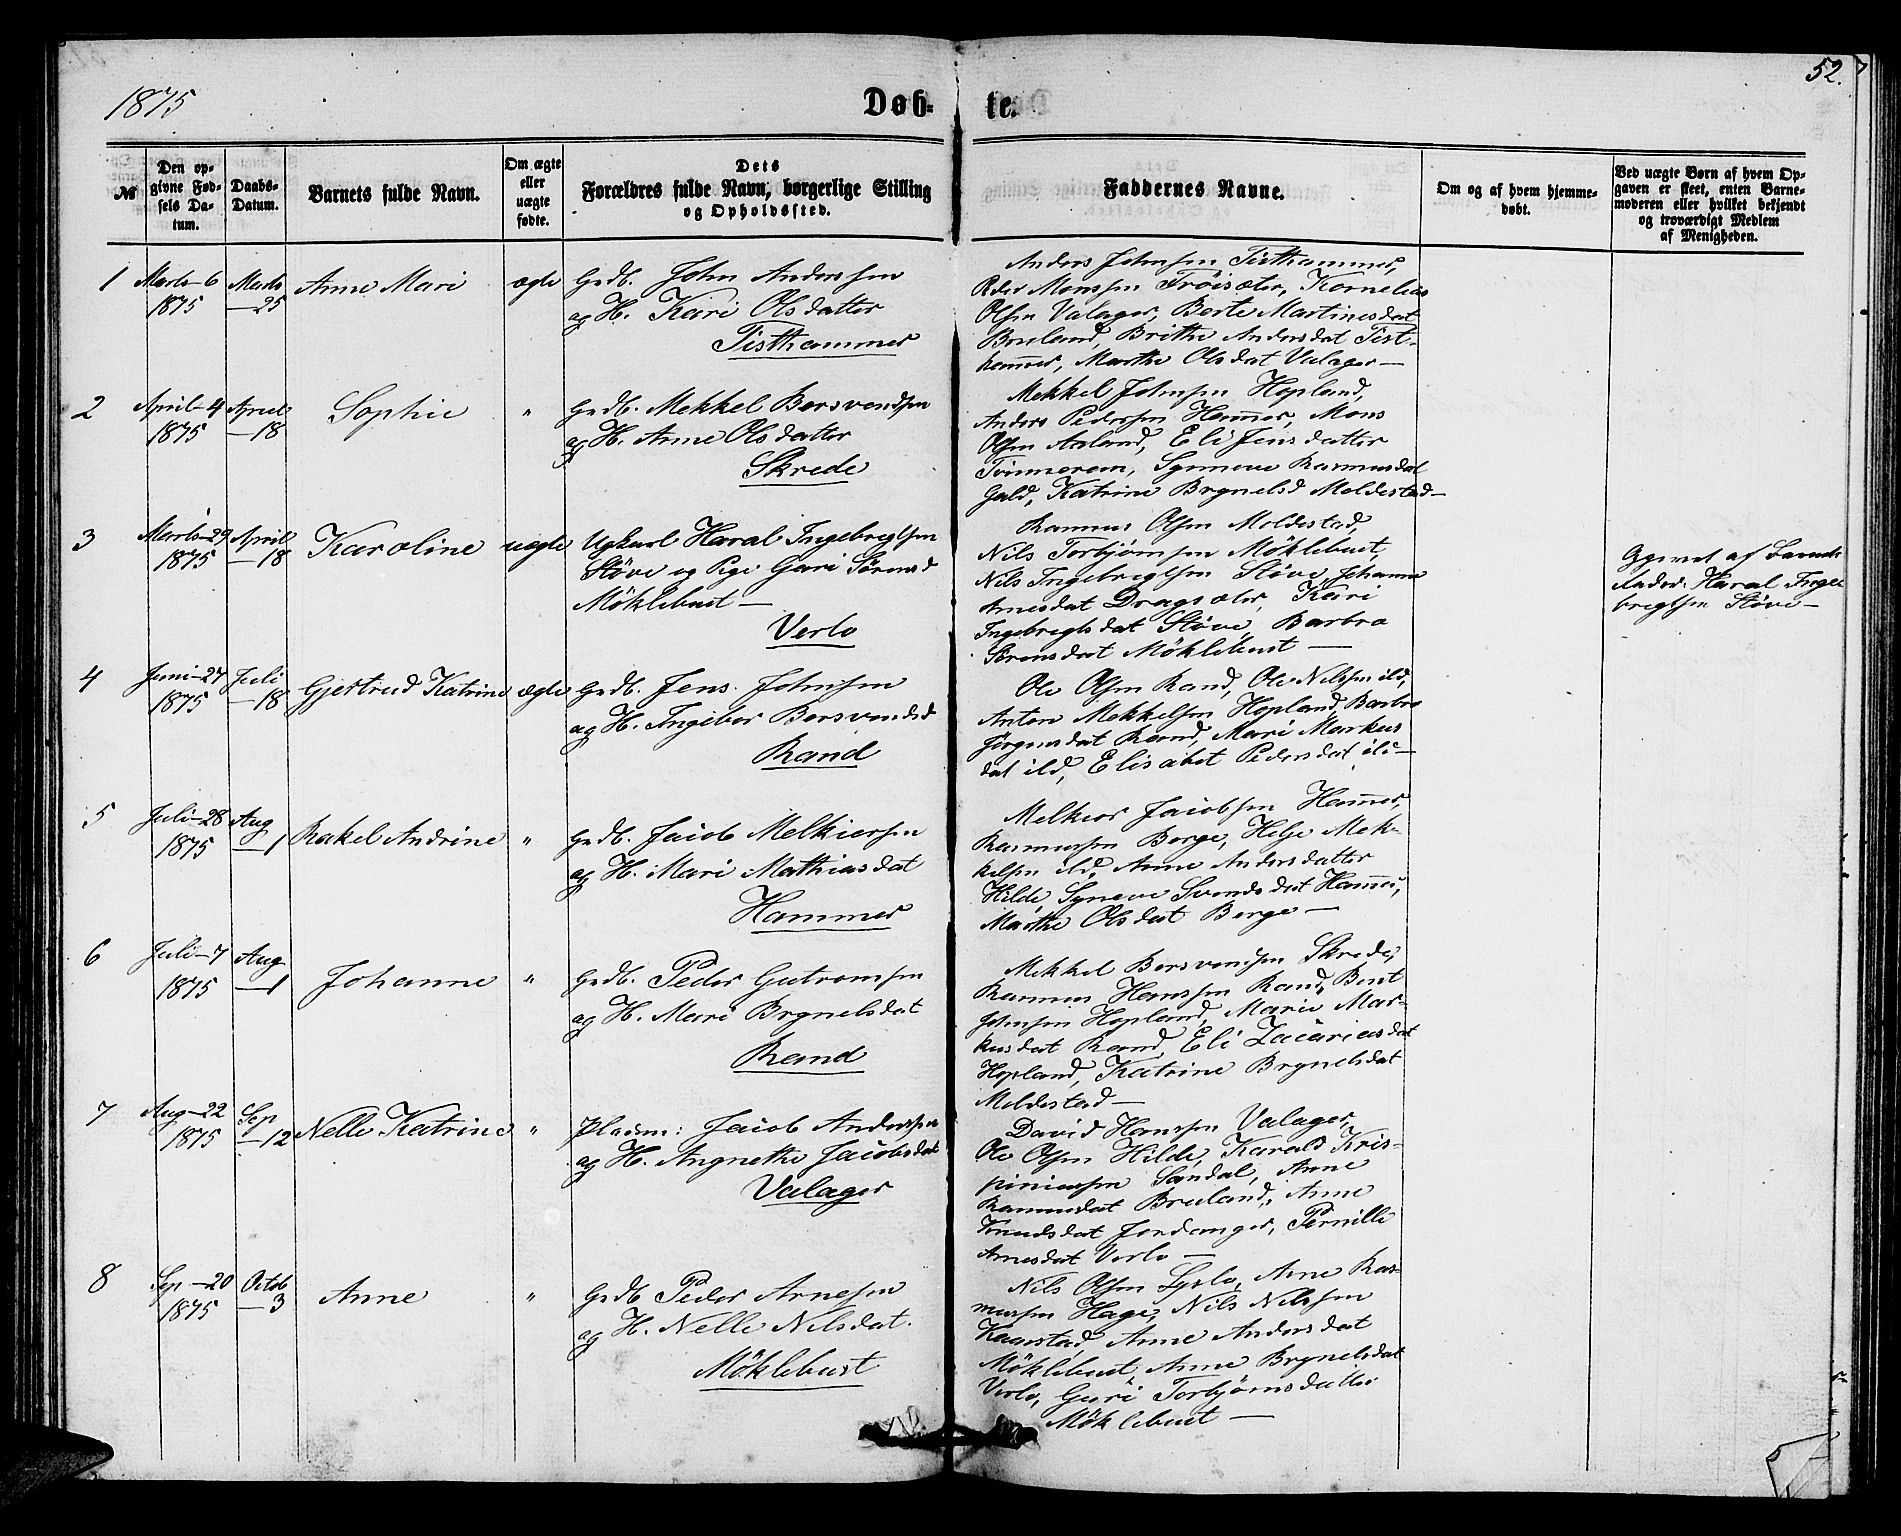 1875
Døb-
te.
52.
№
Den op-
givne Fød-
sels Da-
tum.
Daabs-
Datum.
Barnets fulde Navn.
Om ægte
eller
uægte
fødte.
Dets
Forældres fulde Navn, borgerlige Stilling
og Opholdssted.
Faddernes Navne.
Om og af hvem hjemme-
døbt.
Ved uægte Børn af hvem Op-
gaven er skeet, enten Barne-
moderen eller hvilket bekjendt
og troværdigt Medlem
af Menigheden.
1
Marts 6
1875
Marts
—25
Anne Mari
ægte
Grdb. John Anderssen
og H. Kari Olsdatter
Tisthammer
Anders Johnsen Tisthammer,
Peder Monssen Frøisæter, Kornelius
Olsen Valager, Berte Martinesdat
Bruland, Brithe Andersdat Tist-
hammer, Marthe Olsdat Valager—
2
April—4
1875
April
—18
Sophie
"
Grdb. Mekkel Børsvendsen
og H. Anne Olsdatter
Skrede
Mekkel Johnsen Hopland,
Anders Pederssen Hammer, Mons
Olsen Aaland, Eli Jensdatter
Tømmeröen, Synneve Rasmusdat
Gald, Katrine Brynelsd Moldestad—
3
Marts—29
1875
April
—18
Karoline
uægte
Ugkarl Haral Ingebregtsen
Støve og Pige Guri Sørensd
Möklebust—
Verlo
Rasmus Olsen Moldestad,
Nils Torbjørnsen Möklebust,
Nils Ingebregtsen Støve, Johanne
Arnesdat Dragsæter, Kari
Ingebregtsdat Støve, Barbro
Sørensdat Möklebust—
Opgivet af Barnets
Fader Haral Inge-
bregtsen Støve—
4
Juni—27
1875
Juli
—18
Gjertrud Katrine
ægte
Grdb. Jens Johnsen
og H. Ingebor Børsvendsd
Rand
Ole Olsen Rand, Ole Nilssen ild,
Anton Mekkelsen Hopland, Barbro
Jörgensdat Rand, Mari Markus
dat ild, Elisabet Pedersdat ild—
5
Juli—28
1875
Aug
—1
Rakel Andrine
"
Grdb. Jacob Melkiorsen
og H. Mari Mathiasdat
Hammer
Melkior Jacobsen Hammer,
Rasmussen Berge, Helje Mek-
kelsen ild, Anne Andersdatter
Hilde, Syneve Svendsdat Hammer,
Marthe Olsdat Berge—
6
Juli—7
1875
Aug
—1
Johanne
"
Grdb. Peder Gutromsen
og H. Mari Brynelsdat
Rand
Mekkel Børsvendsen Skrede,
Rasmus Hanssen Rand, Bent
Johnsen Hopland, Marie Mar-
kusdat Rand, Eli Zacariasdat
Hopland, Katrine Brynelsdat
Moldestad—
7
Aug—22
1875
Sep
—12
Nelle Katrine
"
Pladsm: Jacob Anderssen
og H. Angnethe Jacobsdat
Valager
David Hanssen Valager,
Ole Olsen Hilde, Karald Kris-
piniussen Sandal, Anne
Rasmusdat Bruland, Anne
Knudsdat Jordanger, Pernille
Arnesdat Verlo—
8
Sep—20
1875
Octob
—3
Anne
"
Grdb Peder Arnesen
og H. Nelle Nilsdat.
Möklebust
Nils Olsen Lyslo, Arne Ras-
mussen Hage, Nils Nilssen
Kaarstad, Anne Andersdat
Möklebust, Anne Brynelsdat
Verlo, Guri Torbjørnsdatter
Möklebust—